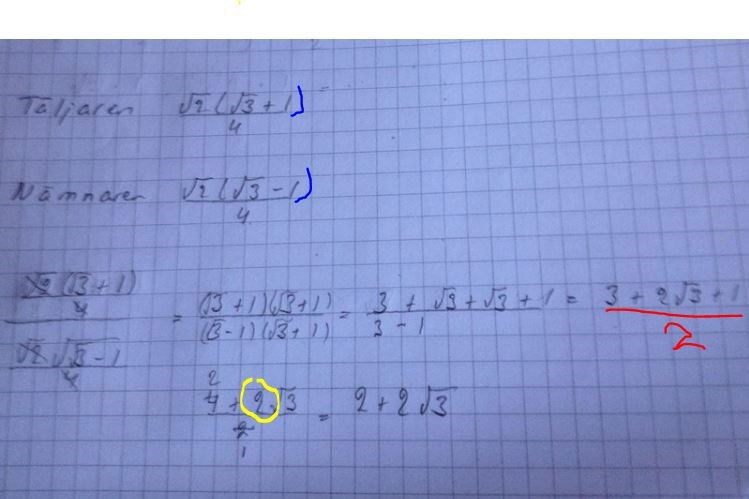 Täljaren √2(√3+1)/4
Nämnaren √2(√3-1)/4
(√2(√3+1)/4)/(√2√3-1/4) = (√3+1)(√3+1)/(√3-1)(√3+1) = 3+√3+√3+1/3-1 = 3+2√3+1/2
2 4+2√3/2 1 = 2+2√3